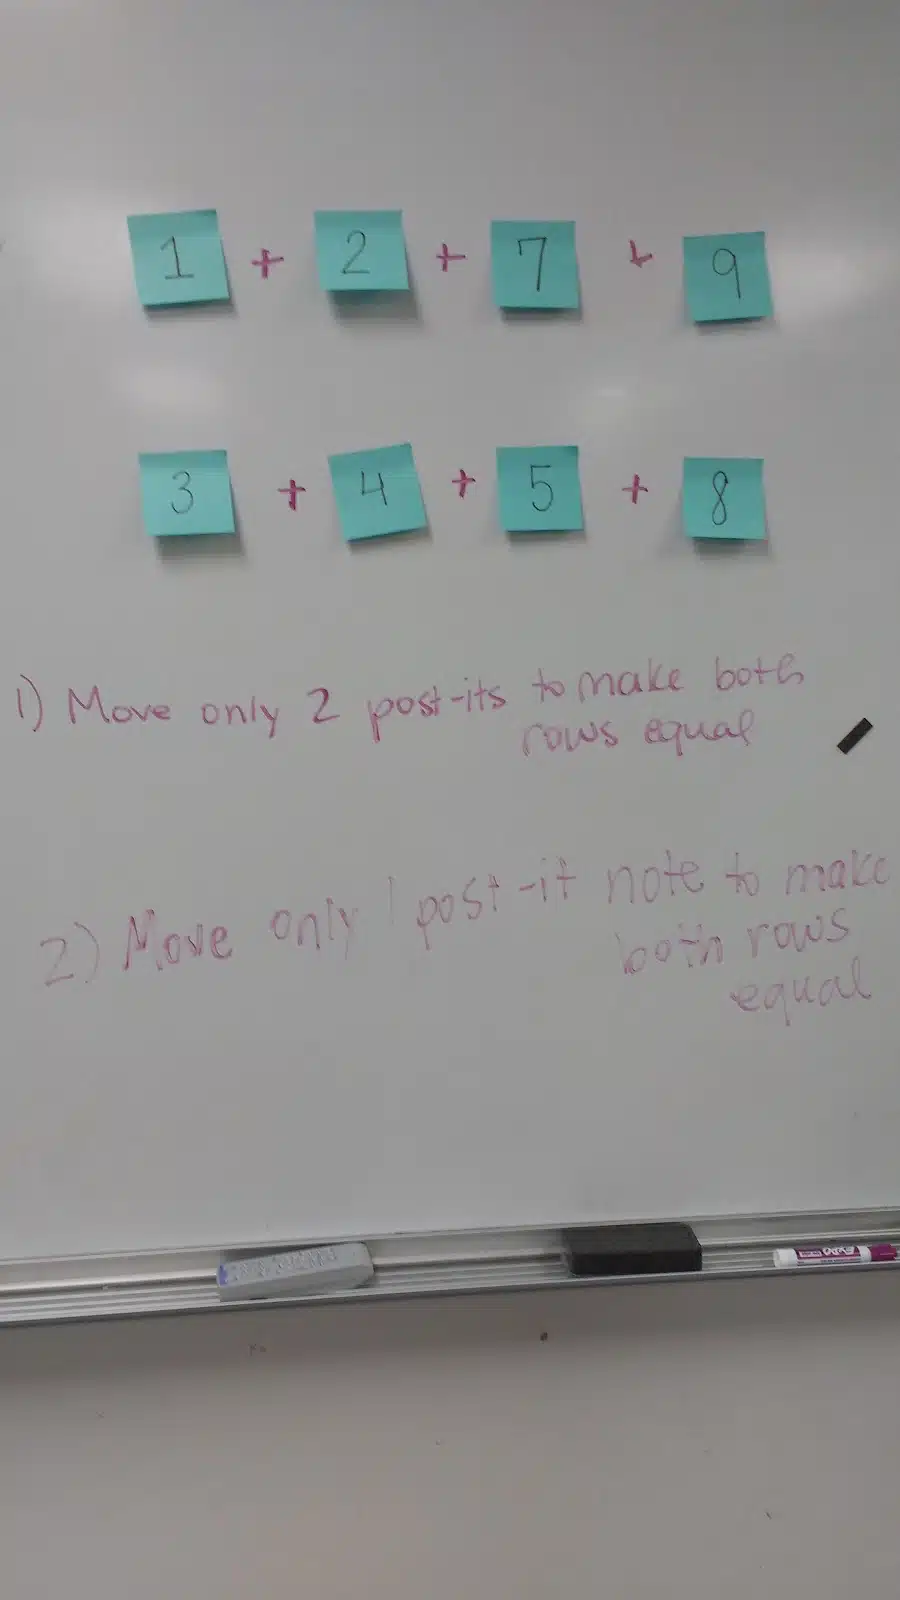 1 + 2 + 7 + 9
3 + 4 + 5 + 8
1) Move only 2 post-its to make both
rows equal
2) Move only 1 post-it note to make
both rows
equal
EXPO